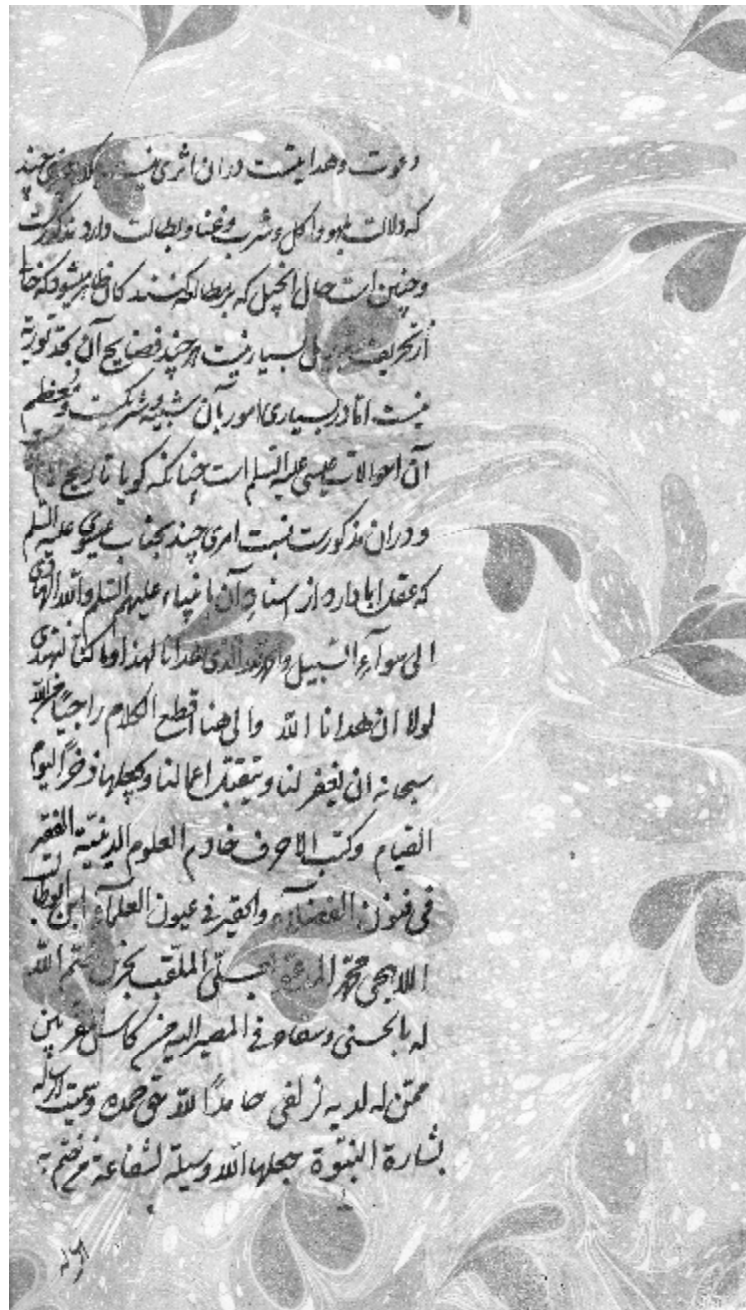 دعوت و هدایتست دران اثری نیست بلکه امری چند
که دلالت بلهو و اکل و شرب و غنا و بطالت دارد مذکورست
و چنین است حال انجیل که هر مطالعه کننده کان ظاهر میشود که خا
از تحریف و تبدیل بسیار نیست هر چند فضایح آن بحد توریة
نیست اما در بسیاری امور بآن شبیه و شریکست و معظم
آن احوالات عیسی علیه السلم است چنانکه کویا تاریخ
و دران مذکورست نسبت امری چند بجناب عیسوی علیه السلم
که عقل ابا دارد از اسناد آن بانبیاء علیهم السلم والله الهادی
الی سوآء السبیل والحمد لله الذی هدانا لهذا وما کنا لنهتدی
لولا ان هدانا الله والی هنا اقطع الکلام راجیا من الله
سبحانه ان یغفر لنا و یتقبل اعمالنا و یجعلها ذخرا لیوم
القیام وکتب الاحرف خادم العلوم الدینیة الفقیر
فی فنون الفضلآء والحقیر فی عیون العلمآء ابن ابوطالب
اللاهجی محمد المدعو بعلی الملقب بحزین ختم الله
له بالحسنی وسقاه فی المصیر الیه من کاس
ممن له لدیه زلفی حامدا لله حق حمده وسمیت الرسالة
بشارة النبوة جعلها الله وسیلة لشفاعة من ختم به
الرسالة